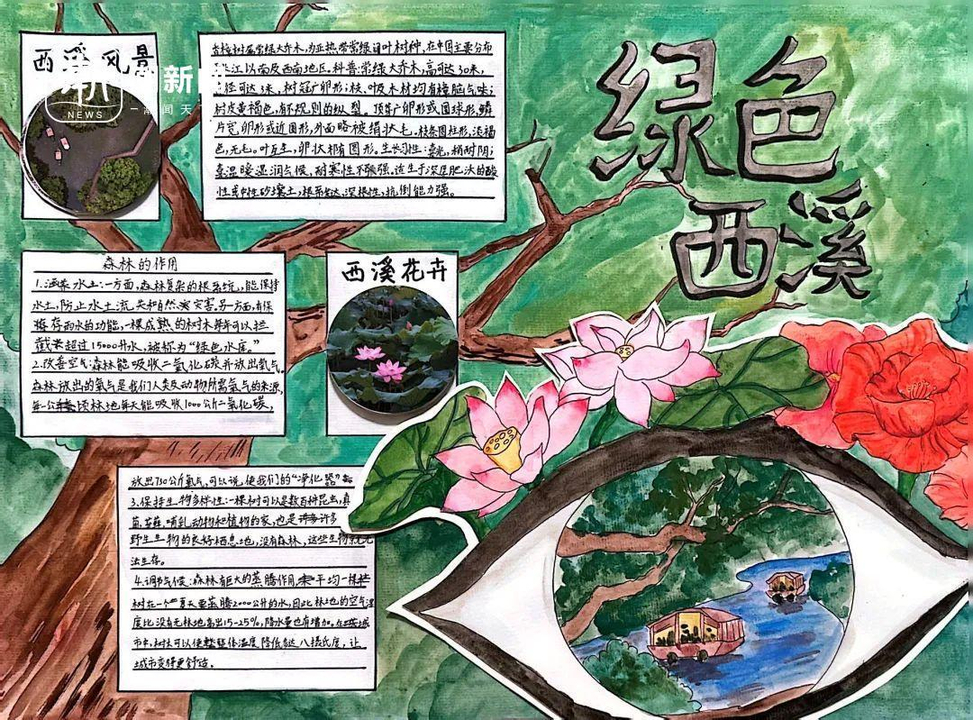 绿色
西溪
西溪风景
新
NEWS
闻天
香樟树属常绿大乔木,为亚热带常绿阔叶树种,在中国主要分布
长江以南及西南地区。科普:常绿大乔木,高可达30米,
直径可达3米,树冠广卵形;枝、叶及木材均有樟脑气味;
树皮黄褐色,有不规则的纵裂。顶芽广卵形或圆球形,鳞
片宽卵形或近圆形,外面略被绢状毛。枝条圆柱形,淡褐
色,无毛。叶互生,卵状椭圆形。生长习性:喜光,稍耐阴;
喜温暖湿润气候,耐寒性不强,适生于深厚肥沃的酸
性或中性砂壤土,根系发达,深根性,抗倒能力强。
森林的作用
1.涵养水土:一方面,森林复杂的根系统,能保持
水土,防止水土流失和自然灾害,另一方面,有保
持存雨水的功能,一棵成熟的树木每年可以拦
截超过15000升水,被称为“绿色水库。”
2.改善空气:森林能吸收二氧化碳并放出氧气。
森林放出的氧气是我们人类及动物所需氧气的来源,
每一公顷林地每天能吸收1000公斤二氧化碳,
西溪花卉
放出730公斤氧气,可以说,使我们的“净化器”
3.保持生物多样性:一棵树可以是数百种昆虫,真
菌、苔藓、哺乳动物和植物的家,也是许多许多
野生生物的良好栖息地,没有森林,这些生物就无
法生存。
4.调节气候:森林有巨大的蒸腾作用,平均一棵
树在一个夏天要蒸腾2000公升的水,因此林地的空气湿
度比没有林地高出15-25%,降水量也有增加。在城
市中,树林可以使整体温度降低达八摄氏度,让
城市变得更舒适。